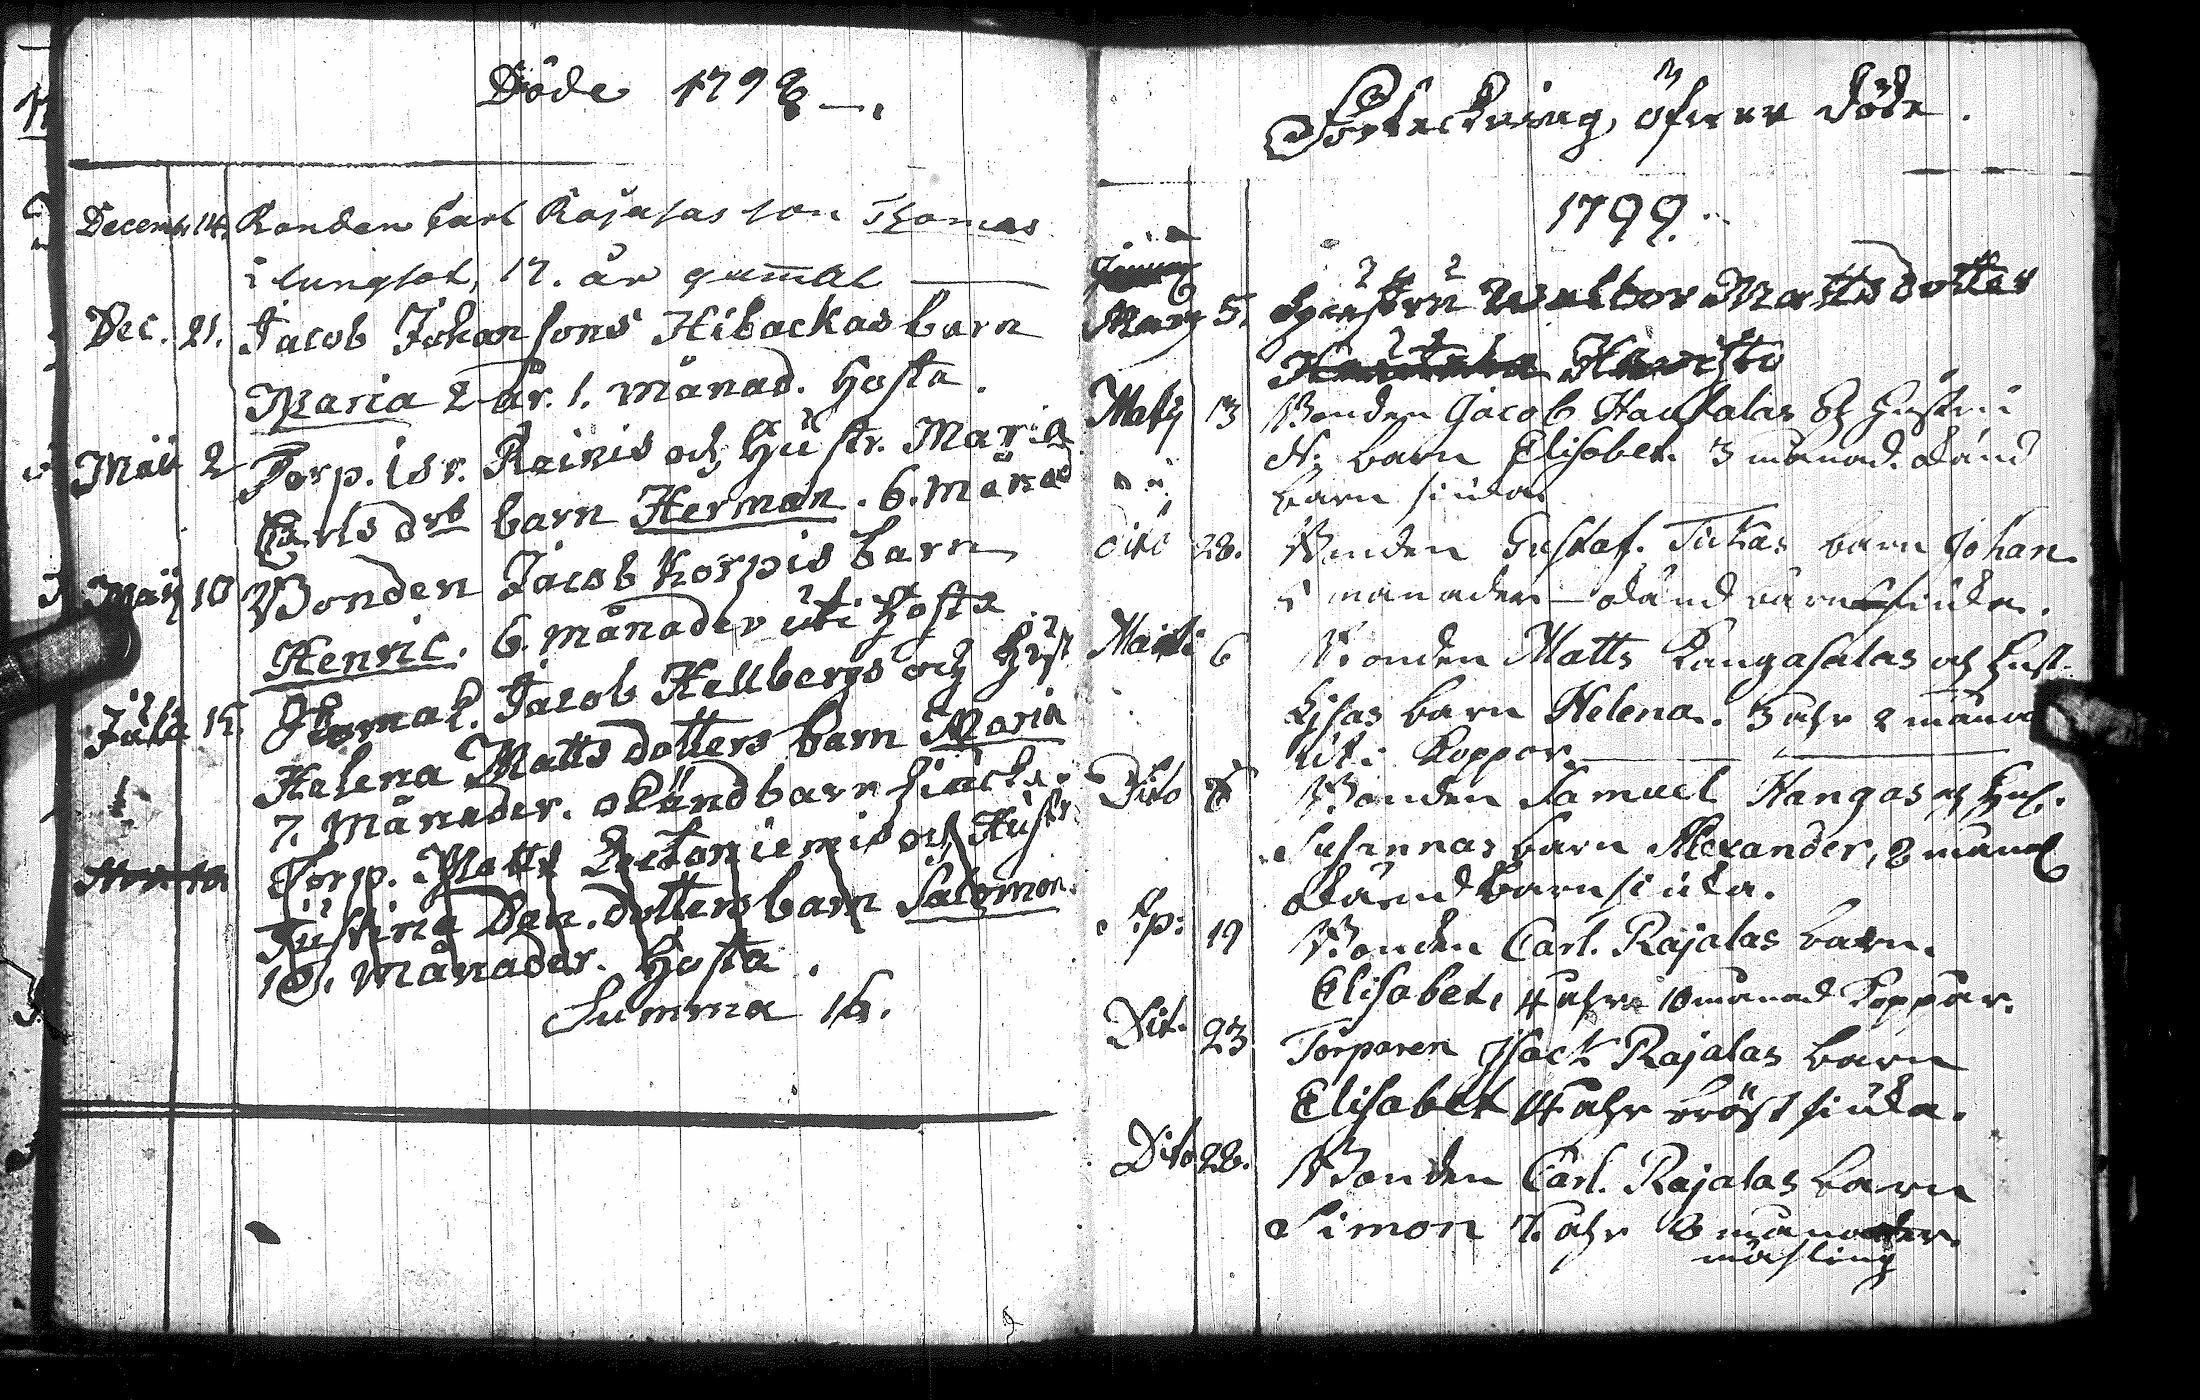 Döde 1798
Decemb. 14. Bonden Carl Rajalas son Thomas
i lungsot, 17. år gammal
Dec. 21. Jacob Johansons Hibackas barn
Maria 2 år. 1. månad. Hosta.
Maii 2 Torp. Isr. Reinis och Hustr. Maria
Carlsdrs barn Herman. 6. månad
Maij 10 Bonden Jacob Korpis barn
Henric. 6. månader uti Hosta
Jacob Hellbergs och Hust
Helena Mattsdotters barn Maria
7. Månader. okänd barn siucka.
Torp. Matts och Hustr.
Justina Dan. dotters barn Salomon.
10. Månader. Hosta.
Summa 16.
Förteckning öfver döde.
1799.
5. Hustrun Walbor Mattsdotter
13 Bonden Jacob Haukalas och Hustru
barn Elisabet. 3 månad. okänd
barn siuka.
Dito 28. Bonden Gustaf. barn Johan
månader okänd barnsiuka.
Martii 6 Bonden Matts Kangasalas och Hust.
Lisas barn Helena. 3 ahr 2 månad
uti Koppor.
Dito 8 Bonden Samuel Kangas och Hus.
Susannas barn Alexander, 2 månad
okänd barnsiuka.
Ap: 19 Bonden Carl. Rajalas barn.
Elisabet, 4 ahr 10 månad Koppor.
Dit. 23 Torparen Isack Rajalas barn
Elisabet ahr bröstsiuka.
Dito 28. Bonden Carl. Rajalas barn
Simon 7. ahr 8 månader
mässling